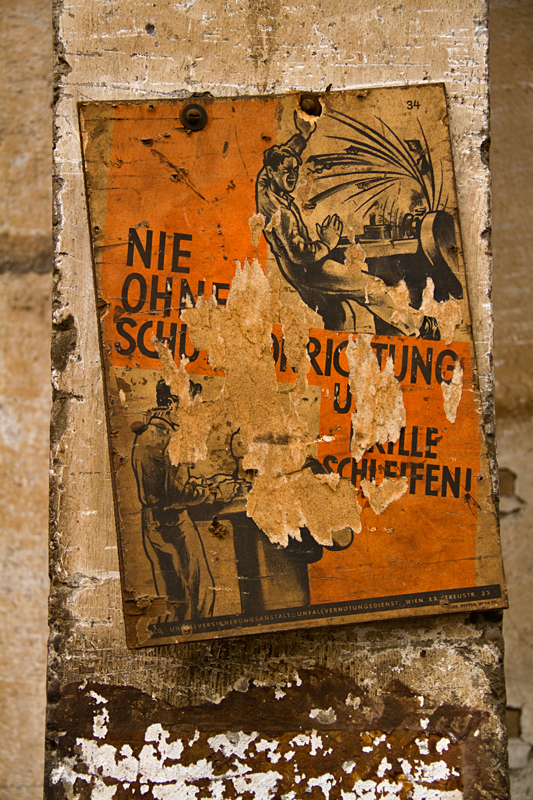 34
NIE
OHNE
SCHU ORRICHTUNG
U
RILLE
SCHLEIFEN!
UNFALLVERSICHERUNGSANSTALT, UNFALLVERHÜTUNGSDIENST, WIEN XX, TREUSTR. 23